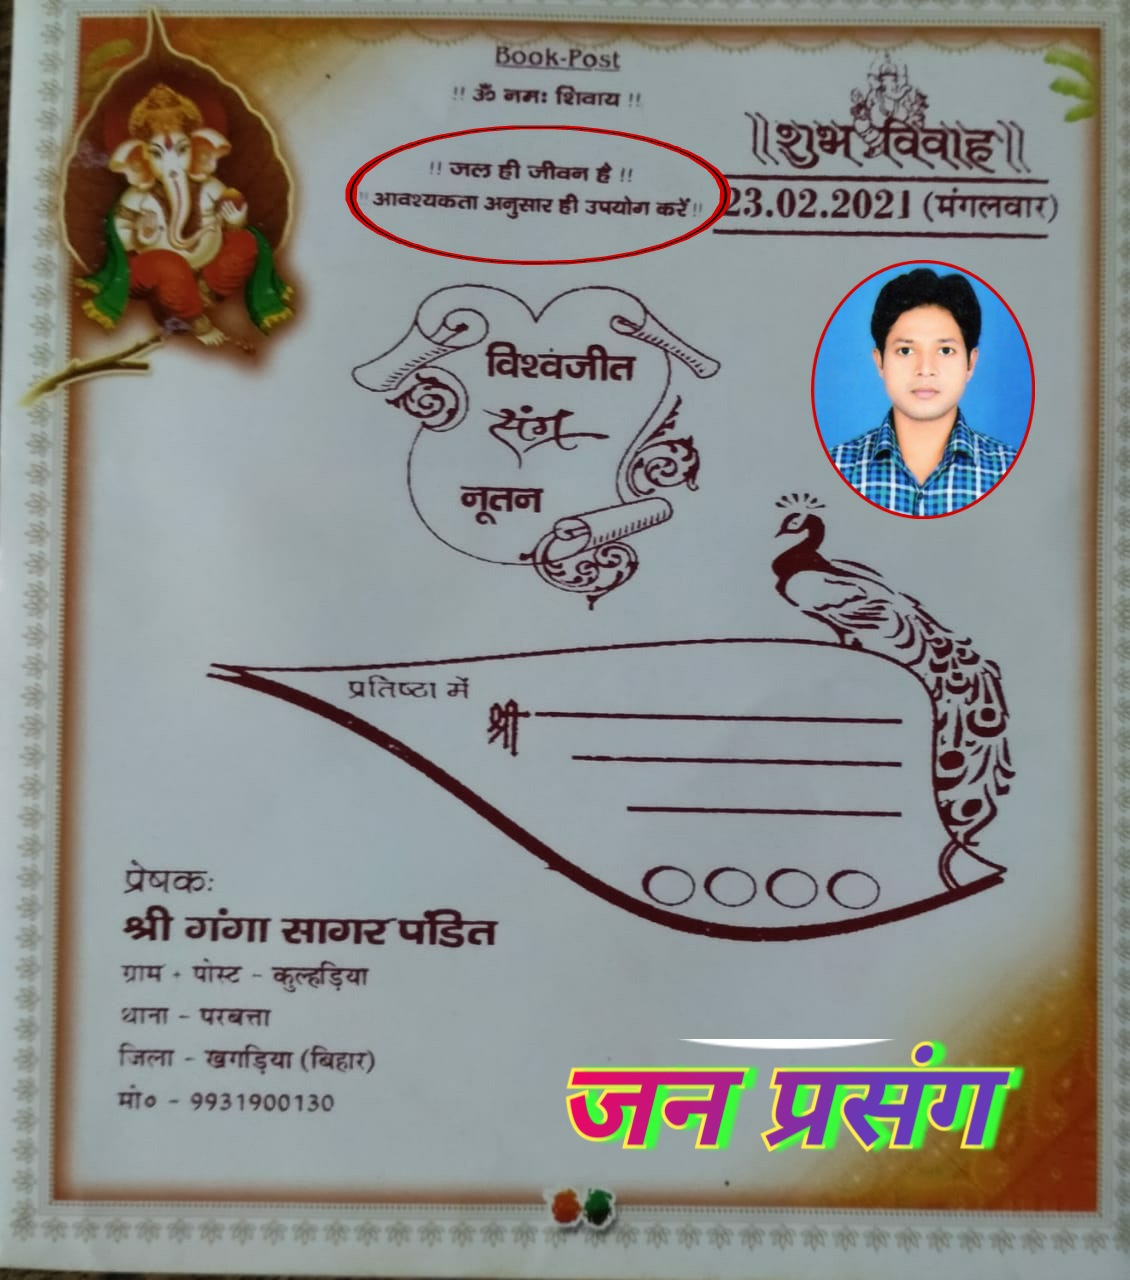 Book-Post
!! ॐ नमः शिवाय !!
!! जल ही जीवन है !!
!! आवश्यकता अनुसार ही उपयोग करें !!
॥ शुभ विवाह ॥
23.02.2021 (मंगलवार)
विश्वंजीत
संग
नूतन
प्रतिष्टा में
श्री
प्रेषकः
श्री गंगा सागर पंडित
ग्राम + पोस्ट - कुल्हड़िया
थाना - परबत्ता
जिला - खगड़िया (बिहार)
मो० - 9931900130
जन प्रसंग